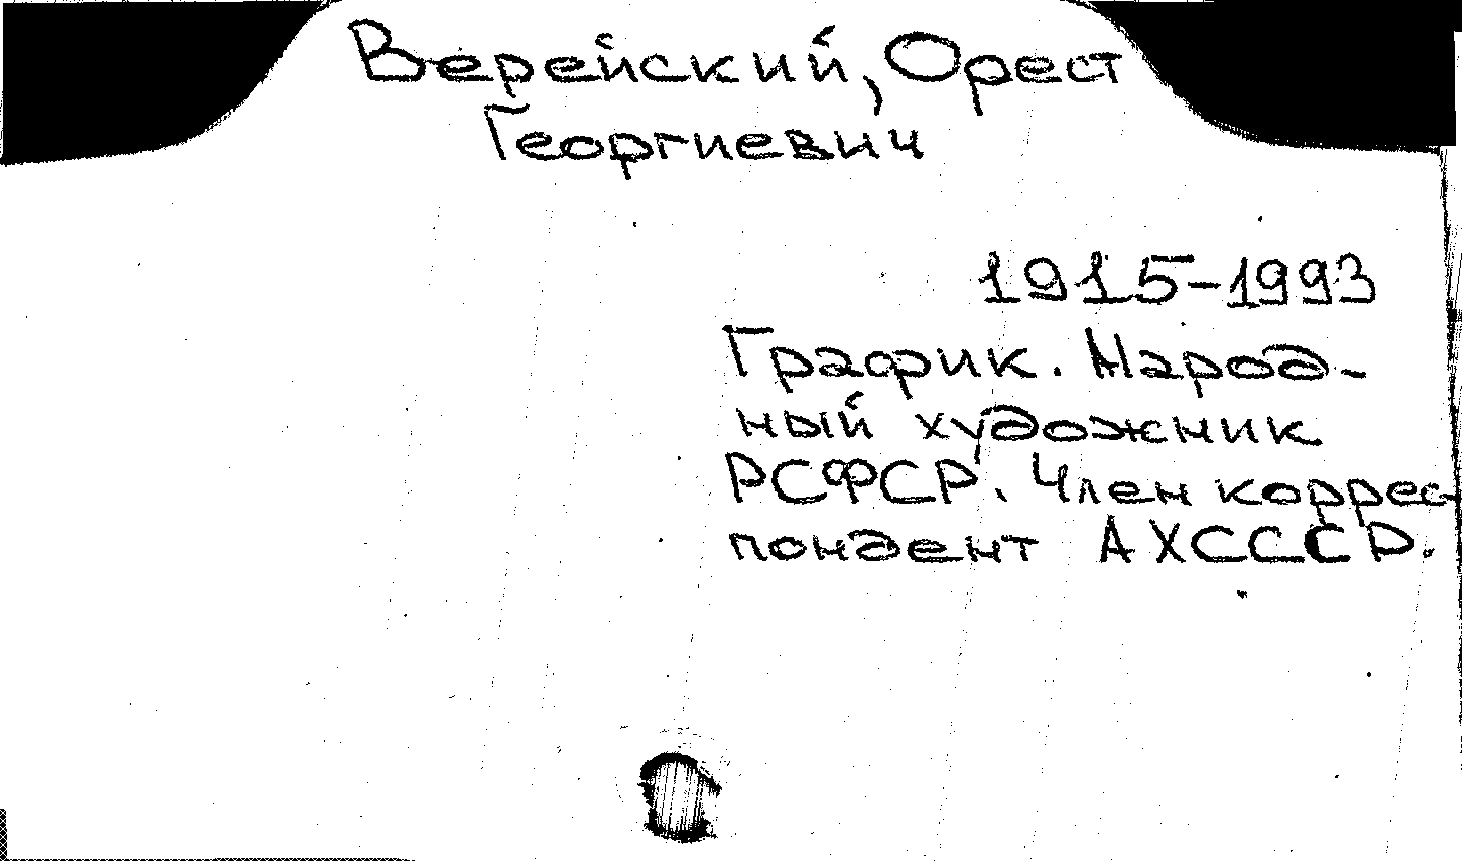 Верейский, Орест
Георгиевич
1915-1993
График. Народ-
ный художник
РСФСР. Член коррес-
пондент АХСССР.